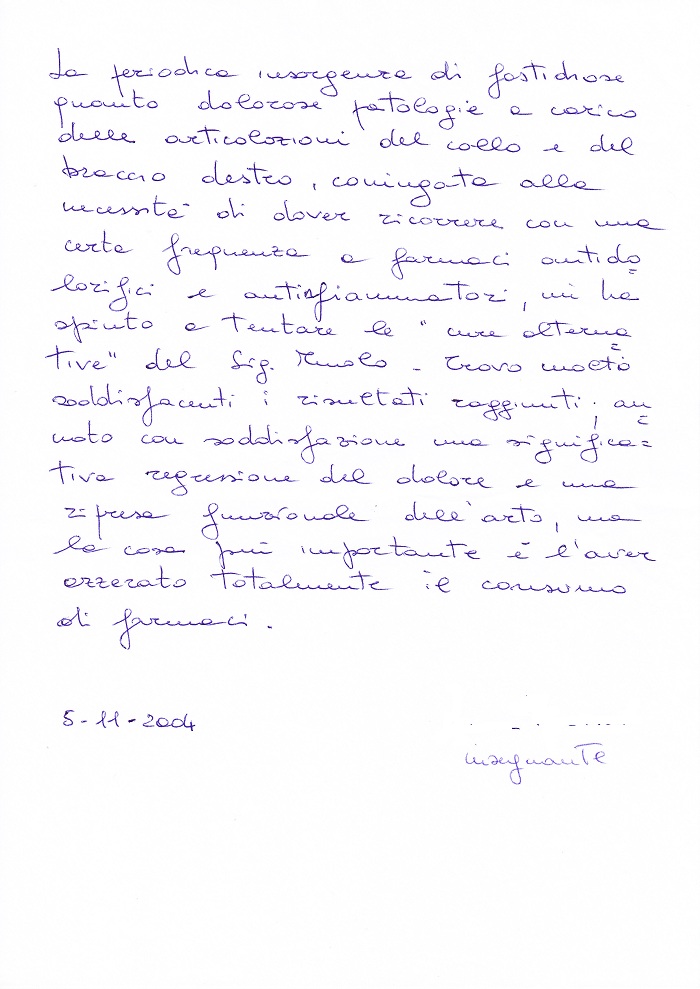 La periodica insorgenza di fastidiose
quanto dolorose patologie a carico
delle articolazioni del collo e del
braccio destro, coniugata alla
necessità di dover ricorrere con una
certa frequenza a farmaci antido=
lorifici e antinfiammatori, mi ha
spinto a tentare le "cure alterna=
tive" del Sig. - Trovo molto
soddisfacenti i risultati raggiunti; an=
noto con soddisfazione una significa=
tiva regressione del dolore e una
ripresa funzionale dell'arto, ma
la cosa più importante è l'aver
azzerato totalmente il consumo
di farmaci.
5-11-2004
insegnante